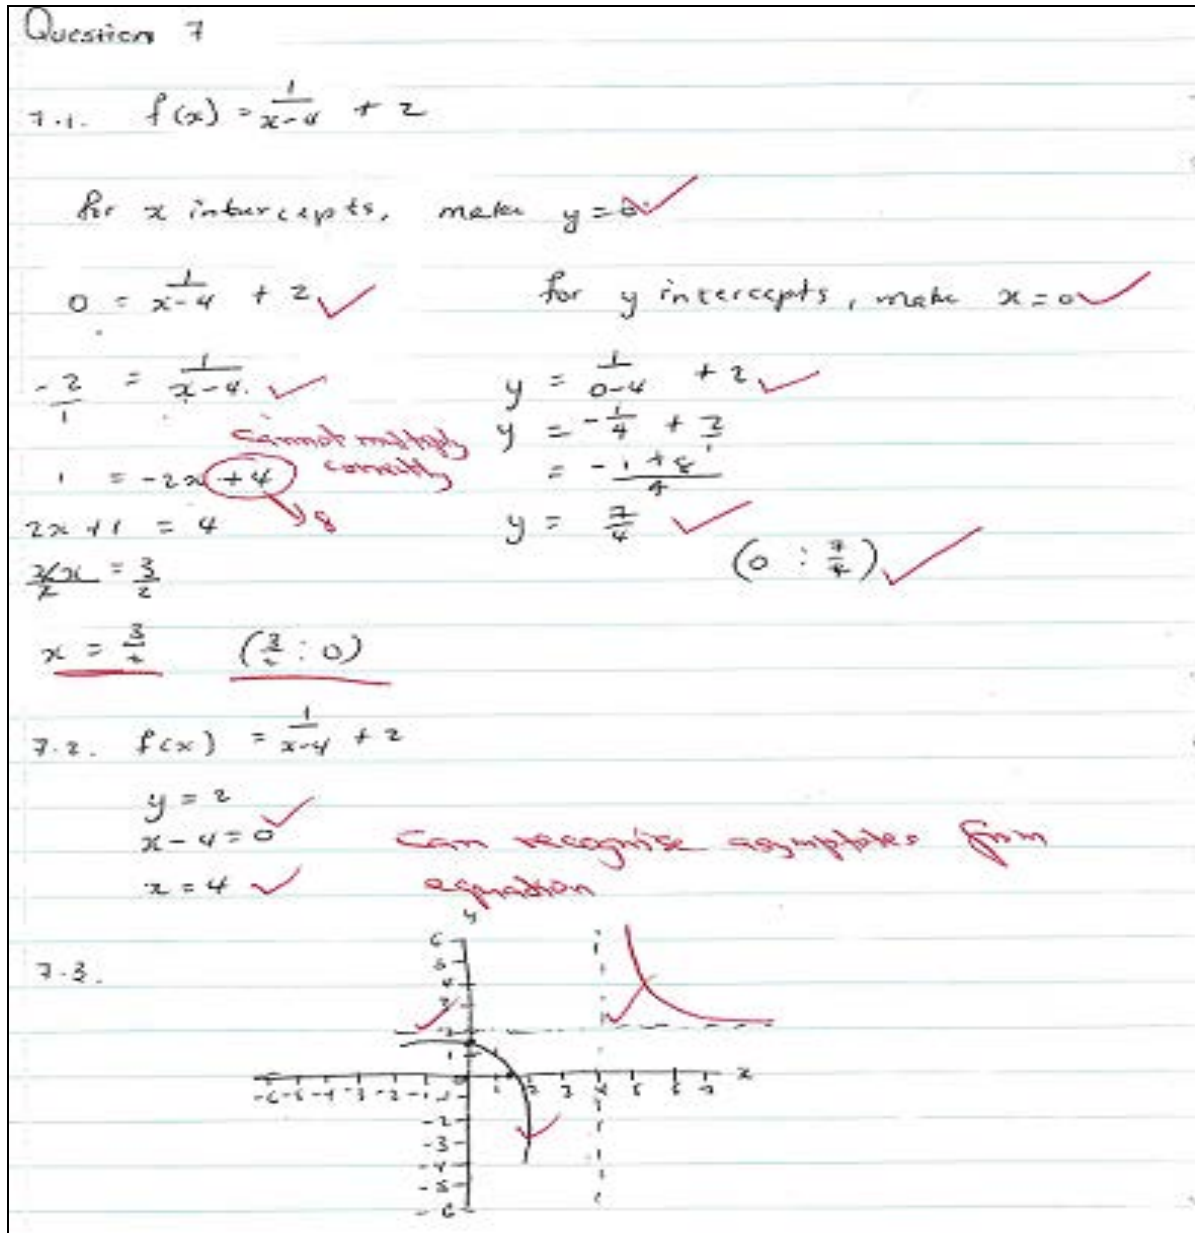 Question 7
7.1. f(x) = 1/(x-4) + 2
for x intercepts, make y = 0
0 = 1/(x-4) + 2
-2/1 = 1/(x-4)
cannot multiply correctly
1 = -2x + 4
8
2x + 1 = 4
2x/2 = 3/2
x = 3/2 (3/2 : 0)
for y intercepts, make x = 0
y = 1/(0-4) + 2
y = -1/4 + 2/1
= (-1 + 8)/4
y = 7/4
(0 : 7/4)
7.2. f(x) = 1/(x-4) + 2
y = 2
x - 4 = 0
x = 4
Can recognise asymptotes from
equation
7.3.
y
6
5
4
3
2
1
-6 -5 -4 -3 -2 -1 0 1 2 3 4 5 6 7 x
-1
-2
-3
-4
-5
-6